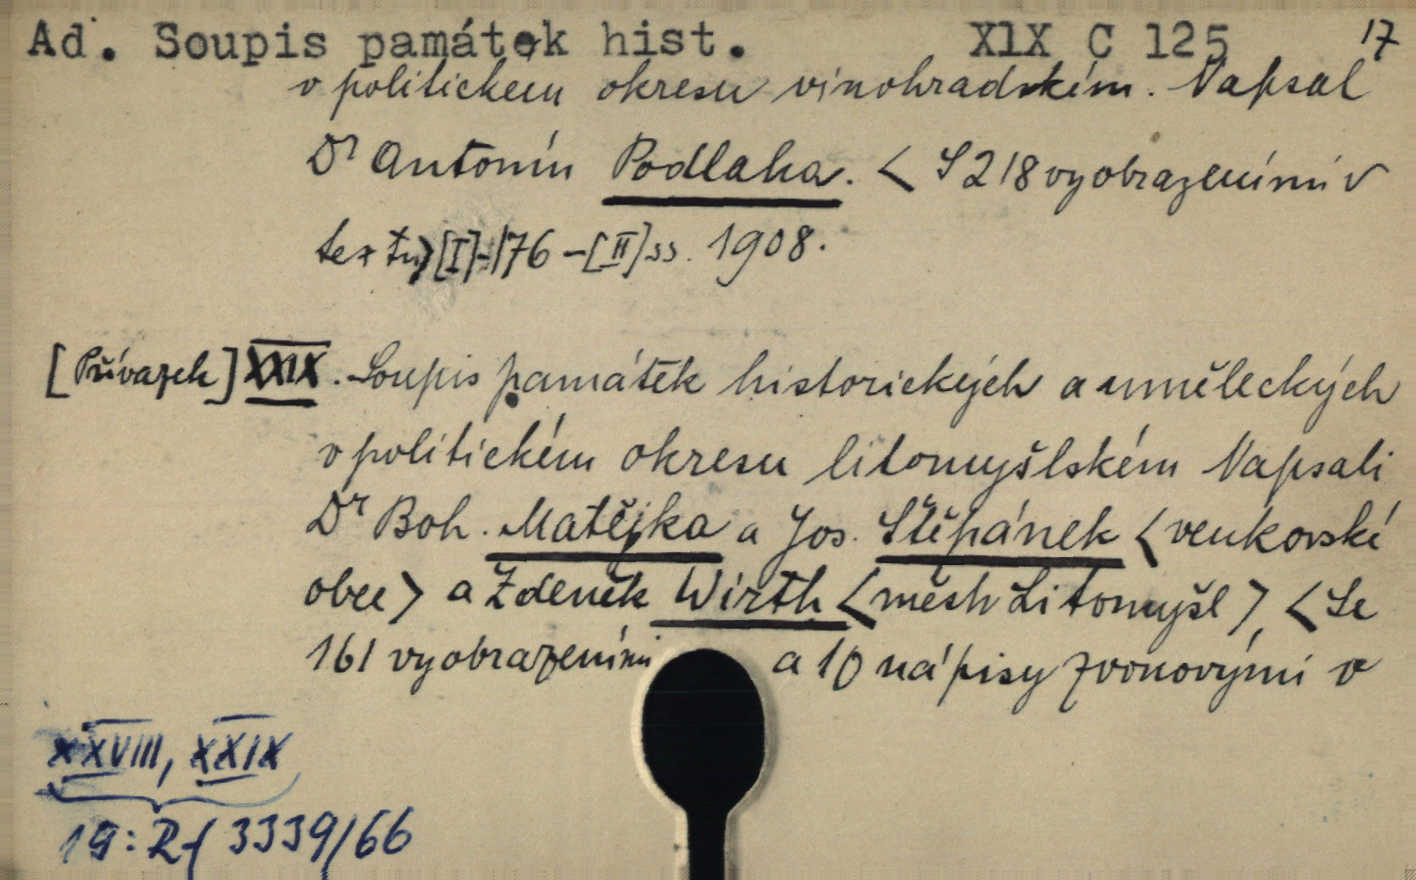 Ad. Soupis památek hist. XIX C 125 17
v politickém okresu vinohradském. Napsal
Dr Antonín Podlaha. < S 218 vyobrazeními v
textu> [I]-176-[II] ss. 1908.
[Přívazek] XXIX. Soupis památek historických a uměleckých
v politickém okresu litomyšlském Napsali
Dr Boh. Matějka a Jos. Štěpánek <venkovské
obce> a Zdeněk Wirth <město Litomyšl>, <Se
161 vyobrazeními a 10 nápisy zvonovými v
XXVIII, XXIX
19: 3339/66